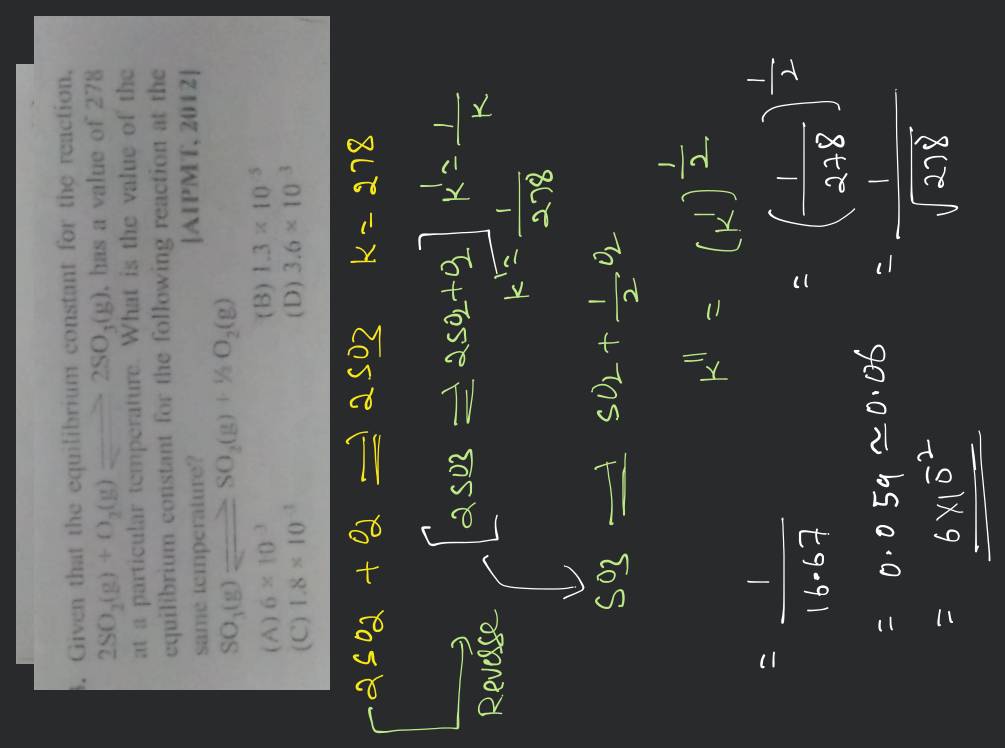 Given that the equilibrium constant for the reaction,
2SO₂(g) + O₂(g) ⇌ 2SO₃(g), has a value of 278
at a particular temperature. What is the value of the
equilibrium constant for the following reaction at the
same temperature? [AIPMT, 2012]
SO₃(g) ⇌ SO₂(g) + ½ O₂(g)
(A) 6 × 10 (B) 1.3 × 10
(C) 1.8 × 10 (D) 3.6 × 10⁻³
2SO2 + O2 ⇌ 2SO3 K = 278
Reverse
[2SO3 ⇌ 2SO2+O2] K' = 1/K
K' = 1/278
SO3 ⇌ SO2 + 1/2 O2
K'' = (K')^1/2
= (1/278)^1/2
= 1/√278
= 1/16.67
= 0.059 ≈ 0.06
= 6×10⁻²